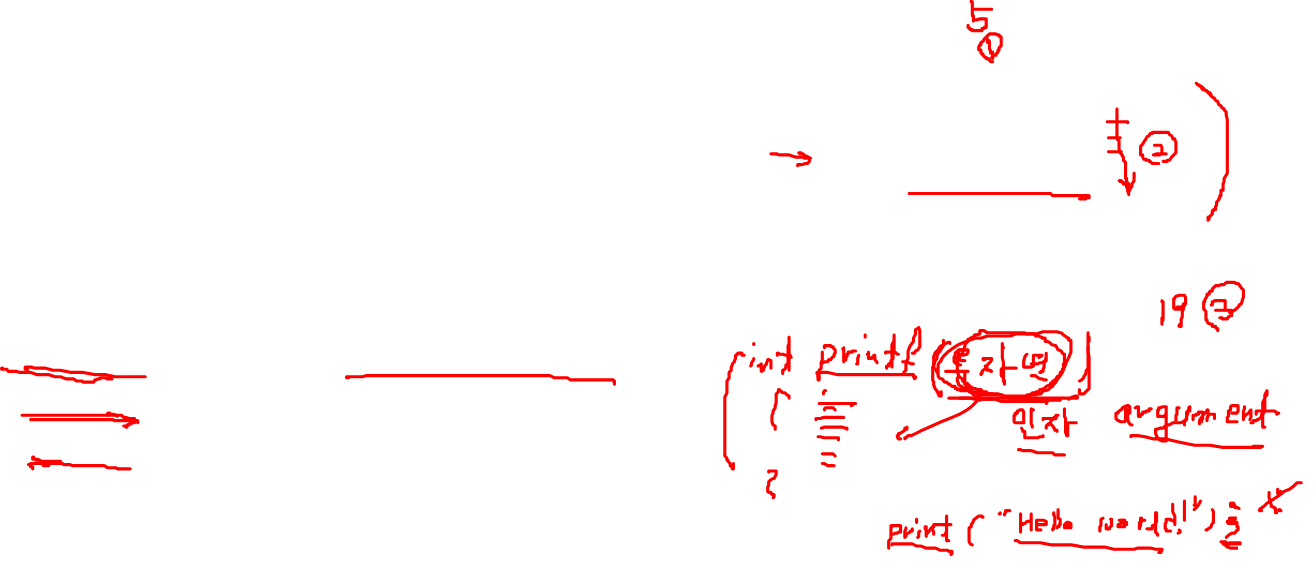 5
①
②
19 ②
int printf (문자열)
{
인자 argument
}
print ("Hello world!");